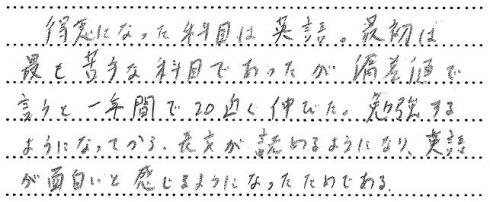 得意になった科目は英語。最初は
最も苦手な科目であったが偏差値で
言うと一年間で20近く伸びた。勉強する
ようになってから、長文が読めるようになり、英語
が面白いと感じるようになったためである